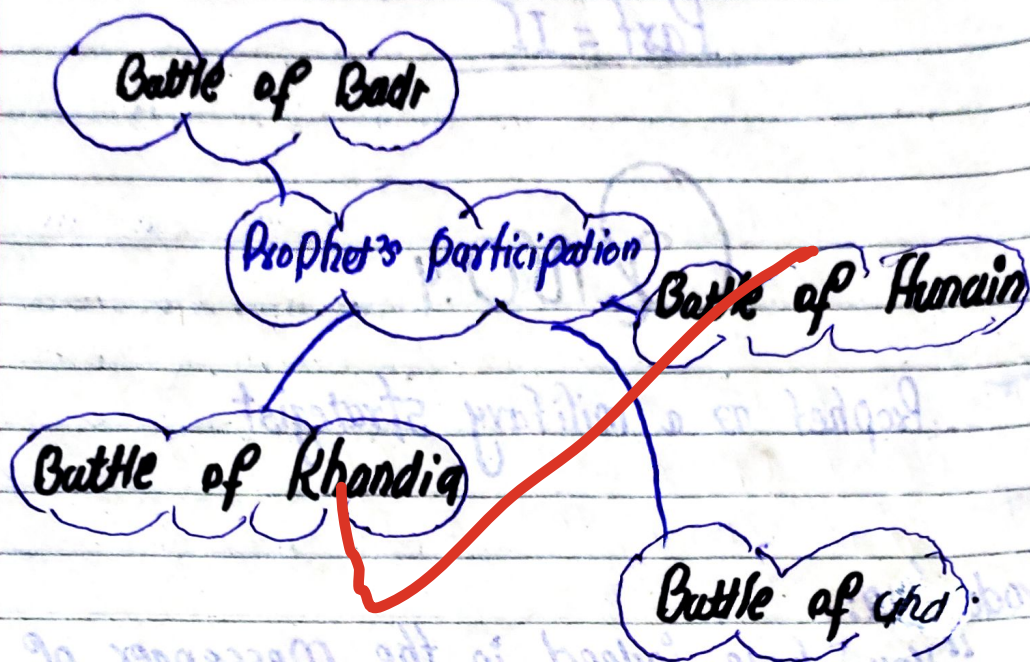 Battle of Badr
Prophet's participation
Battle of Hunain
Battle of Khandiq
Battle of Uhd.